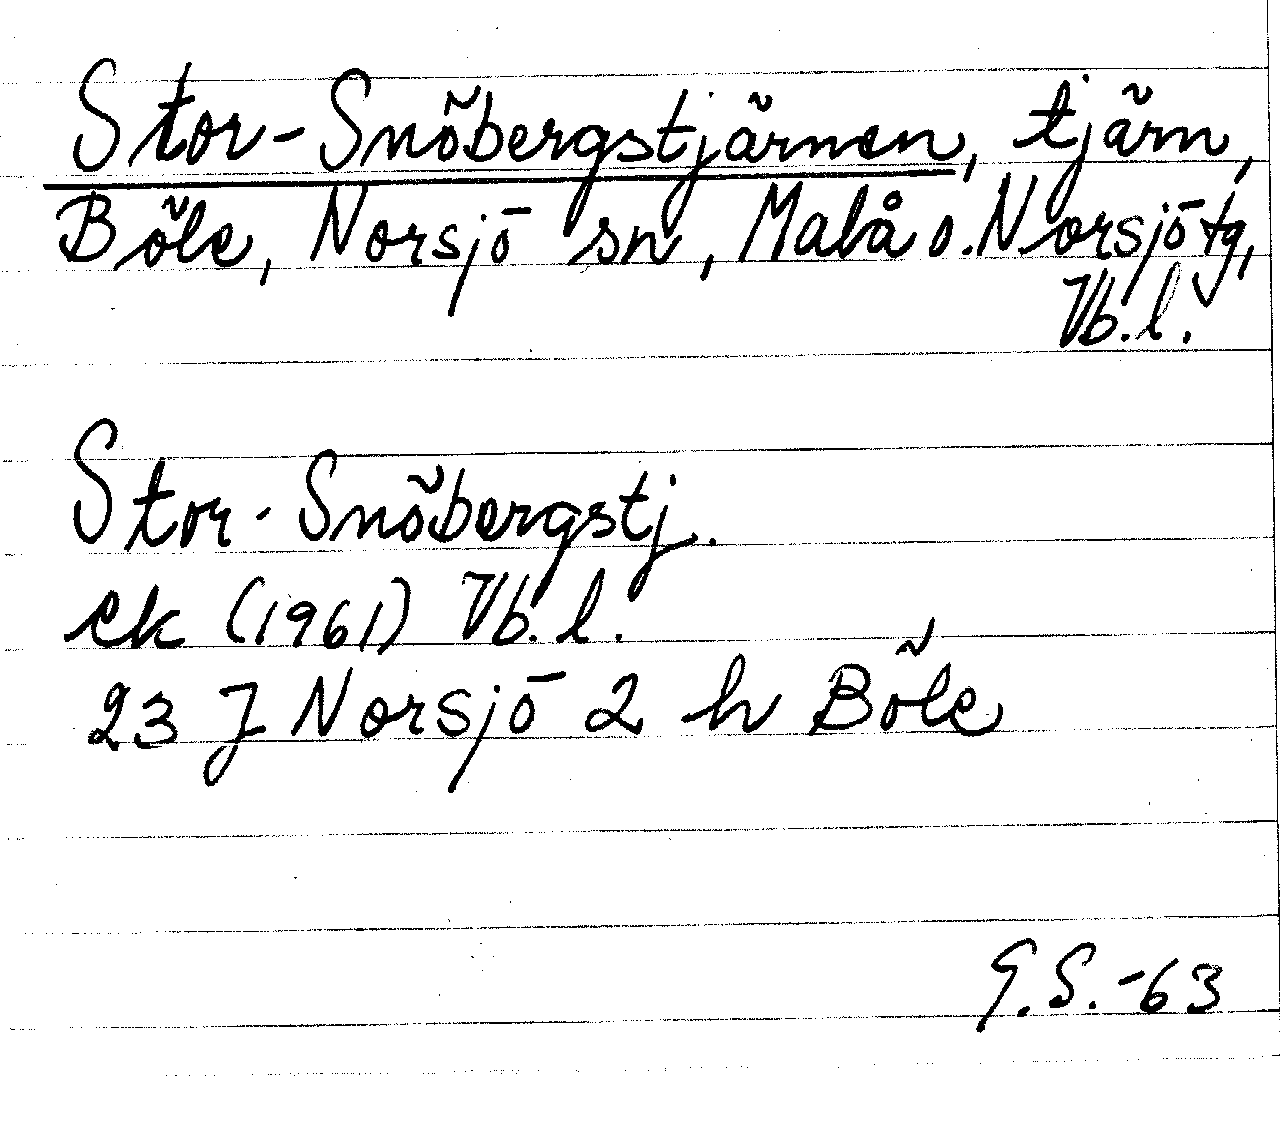 Stor-Snöbergstjärnen, tjärn,
Böle, Norsjö sn, Malå o. Norsjö tg,
Vb.l.
Stor-Snöbergstj.
ek (1961) Vb.l.
23 J Norsjö 2 h Böle
G.S.-63